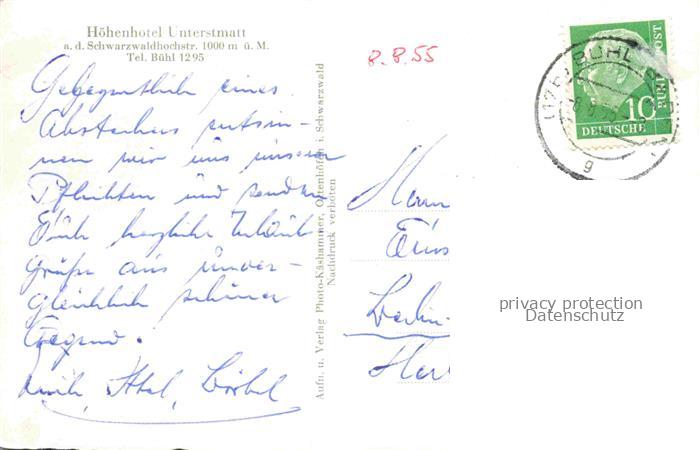 Höhenhotel Unterstmatt
a. d. Schwarzwaldhochstr. 1000 m ü. M.
Tel. Bühl 1295
8.8.55
Gelegentlich eines
Abstechers entsin-
nen wir uns unserer
Pflichten und senden
Euch herzliche Urlaub
grüße aus unver-
gleichlich schöner
Gegend.
Bärbel
Aufn. u. Verlag Photo-Käshammer, Ottenhöfen i. Schwarzwald
Nachdruck verboten
Herrn
Berlin-
BÜHL
10
DEUTSCHE
BUNDESPOST
g
privacy protection
Datenschutz